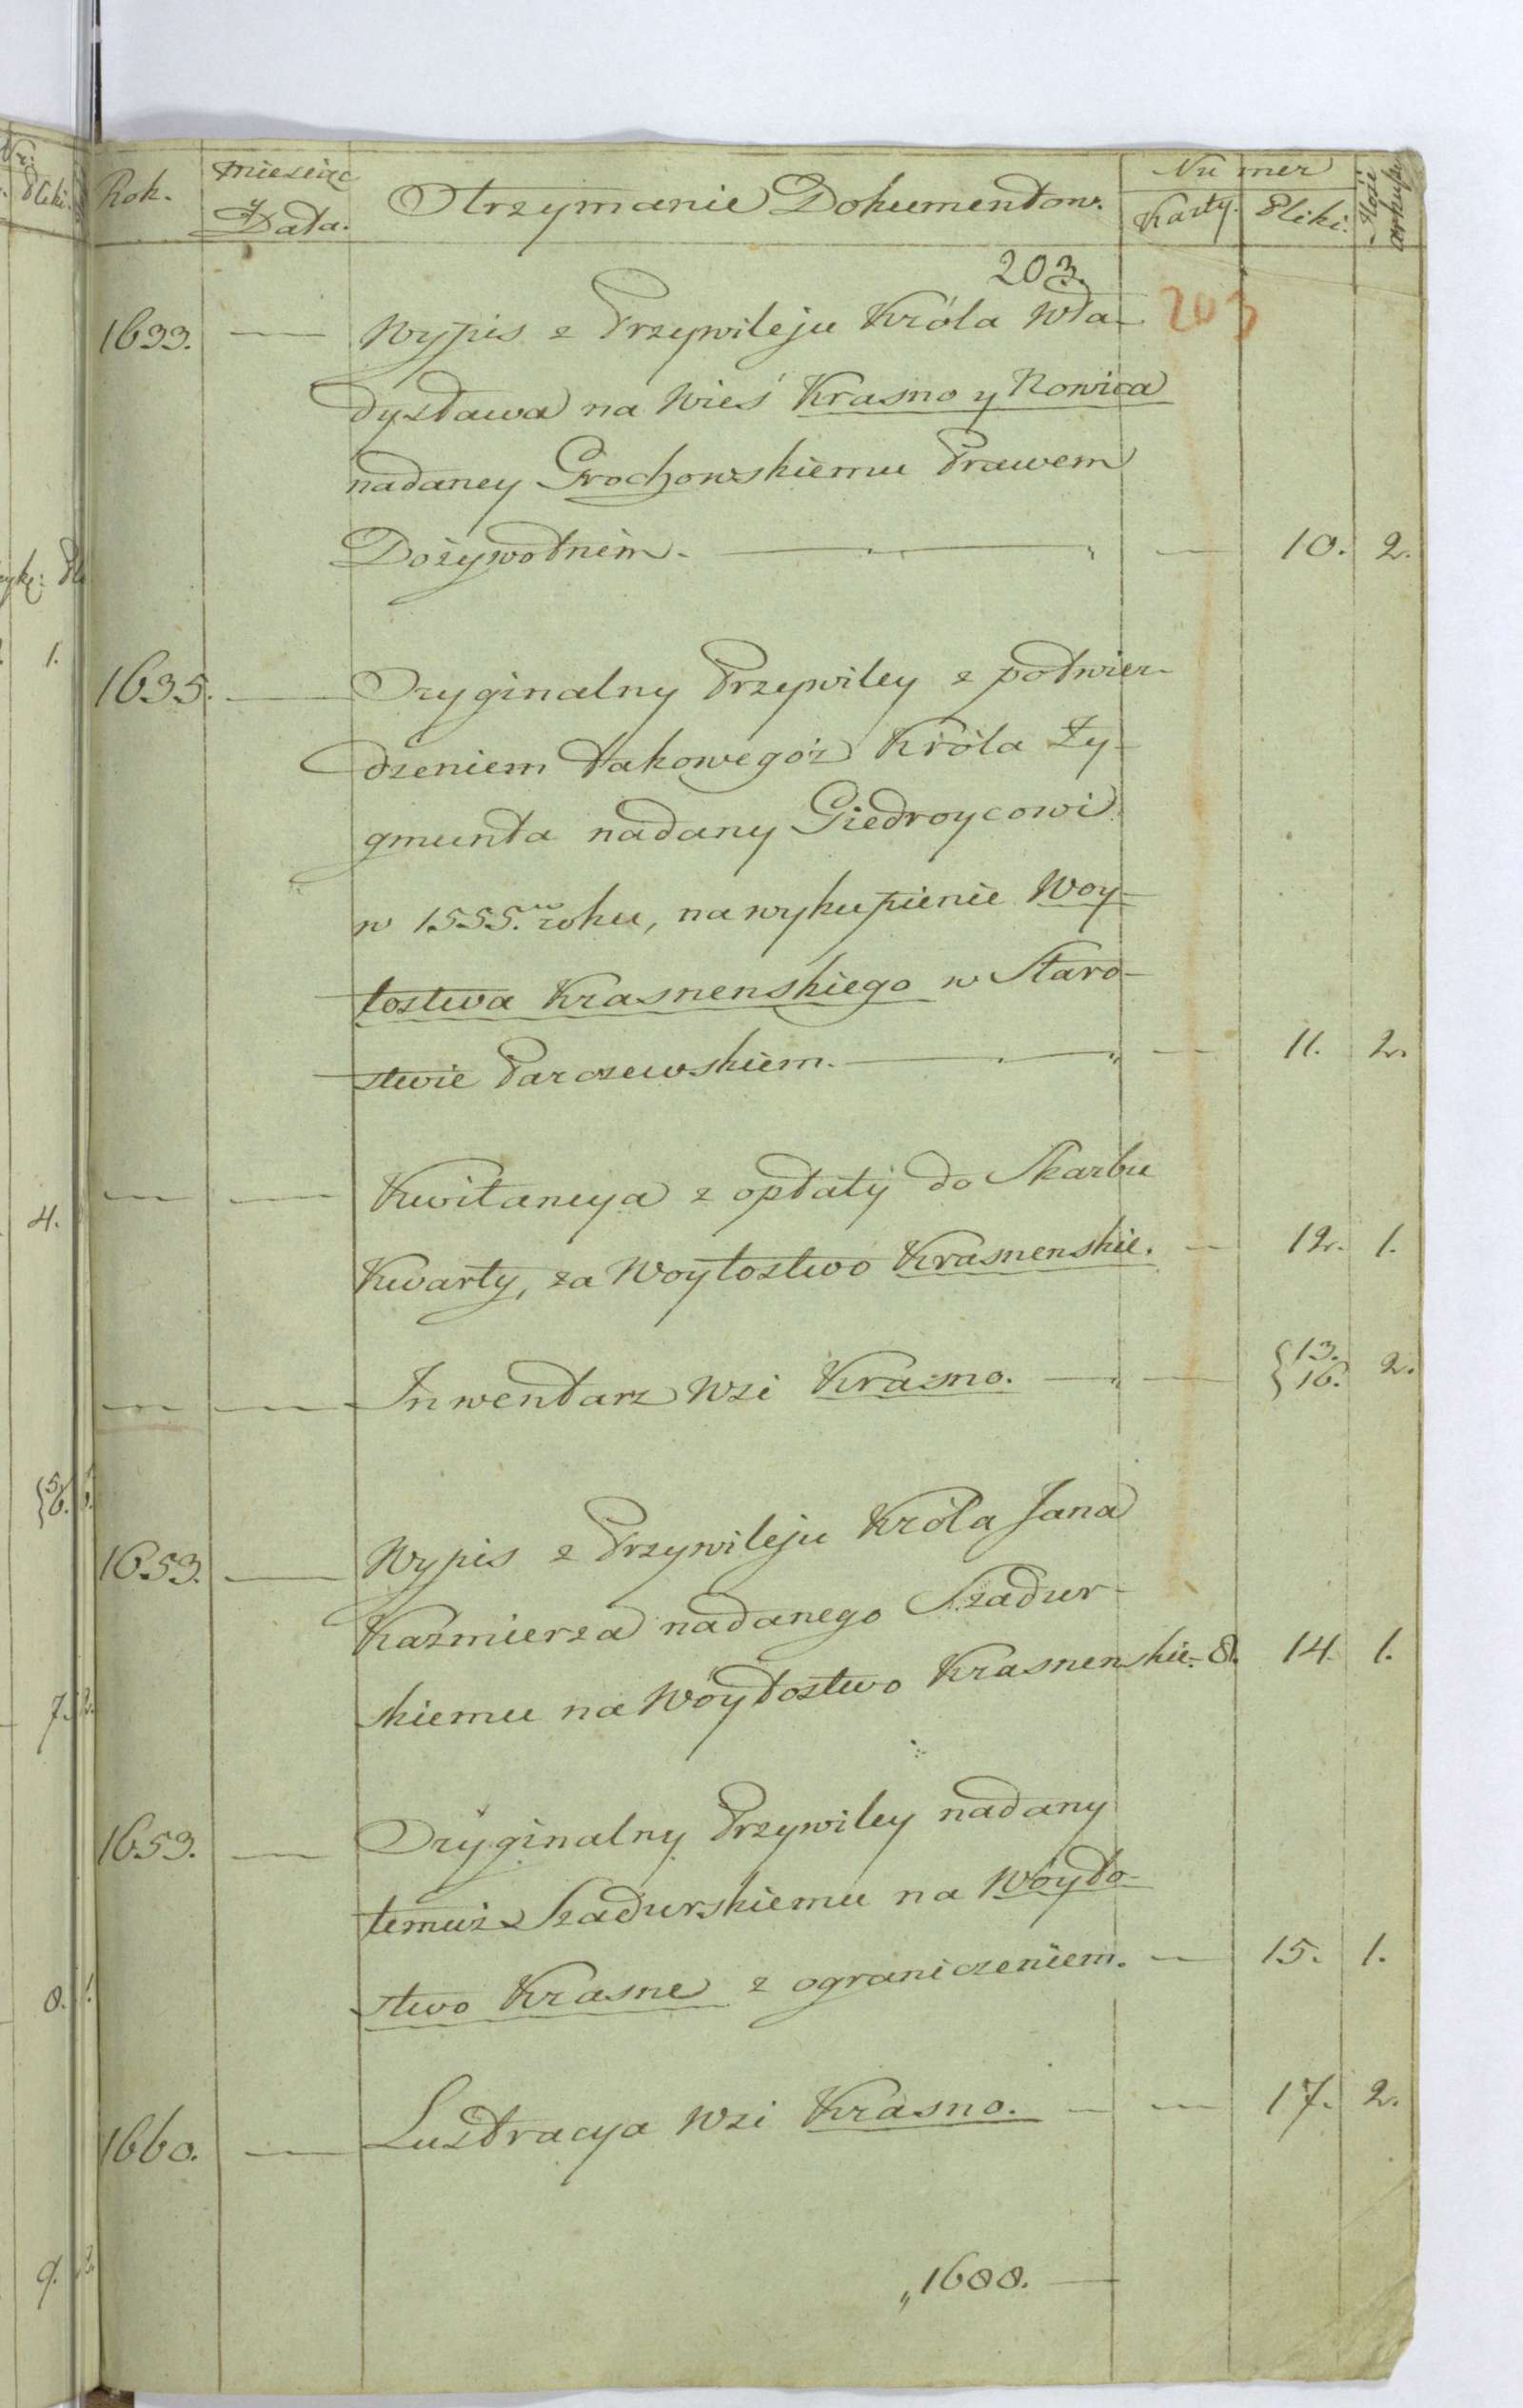 Rok.
Miesiąc
Data.
Otrzymanie Dokumentow.
Numer
Karty. Pliki.
Ilość arkuszy
203.
203
1633. — Wypis z Przywileju Króla Wła-
dysława na Wieś Krasno y Nowica
nadaney Grochowskiemu Prawem
Dożywotnim. — 10. 2.
1635. — Oryginalny Przywiley z potwier-
dzeniem takowegóż Króla Zy-
gmunta nadany Giedroycowi
w 1555. roku, na wykupienie Woy-
tostwa Krasnenskiego w Staro-
stwie Parczewskiem. — 11. 2.
— — Kwitancya z opłaty do Skarbu
Kwarty, za Woytostwo Krasnenskie. — 12. 1.
— — Inwentarz Wsi Krasno. — { 13. 16. 2.
1653. — Wypis z Przywileju Króla Jana
Kaźmierza nadanego Szadur-
skiemu na Wóytostwo Krasnenskie. 8. 14. 1.
1659. — Oryginalny Przywiley nadany
temuż Szadurskiemu na Wóyto-
stwo Krasne z ograniczeniem. — 15. 1.
1660. — Lustracya Wsi Krasno. — 17. 2.
„1688. —
1.
4.
{5. 6.
7.
8.
9.